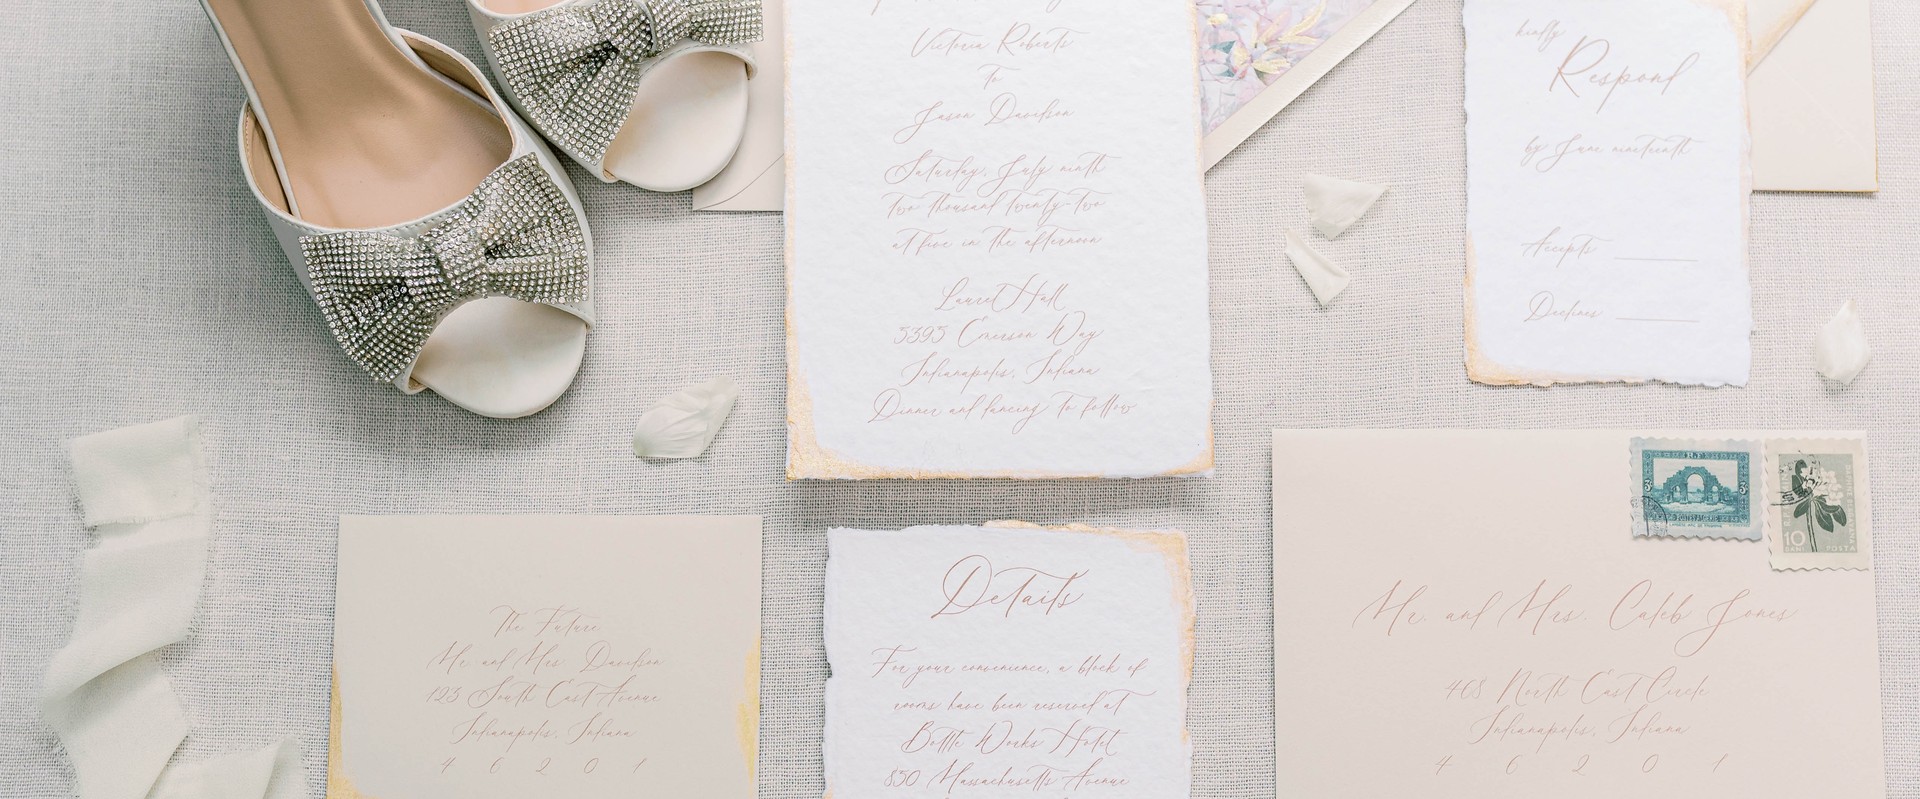 Victoria Roberts
to
Jason Davidson
Saturday, July ninth
two thousand twenty-two
at five in the afternoon
Laurel Hall
5395 Emerson Way
Indianapolis, Indiana
Dinner and dancing to follow
kindly
Respond
by June nineteenth
Accepts
Declines
The Future
Mr. and Mrs. Davidson
123 South East Avenue
Indianapolis, Indiana
4 6 2 0 1
Details
For your convenience, a block of
rooms have been reserved at
Bottle Works Hotel
850 Massachusetts Avenue
3
10
POSTA
Mr. and Mrs. Caleb Jones
468 North East Circle
Indianapolis, Indiana
4 6 2 0 1